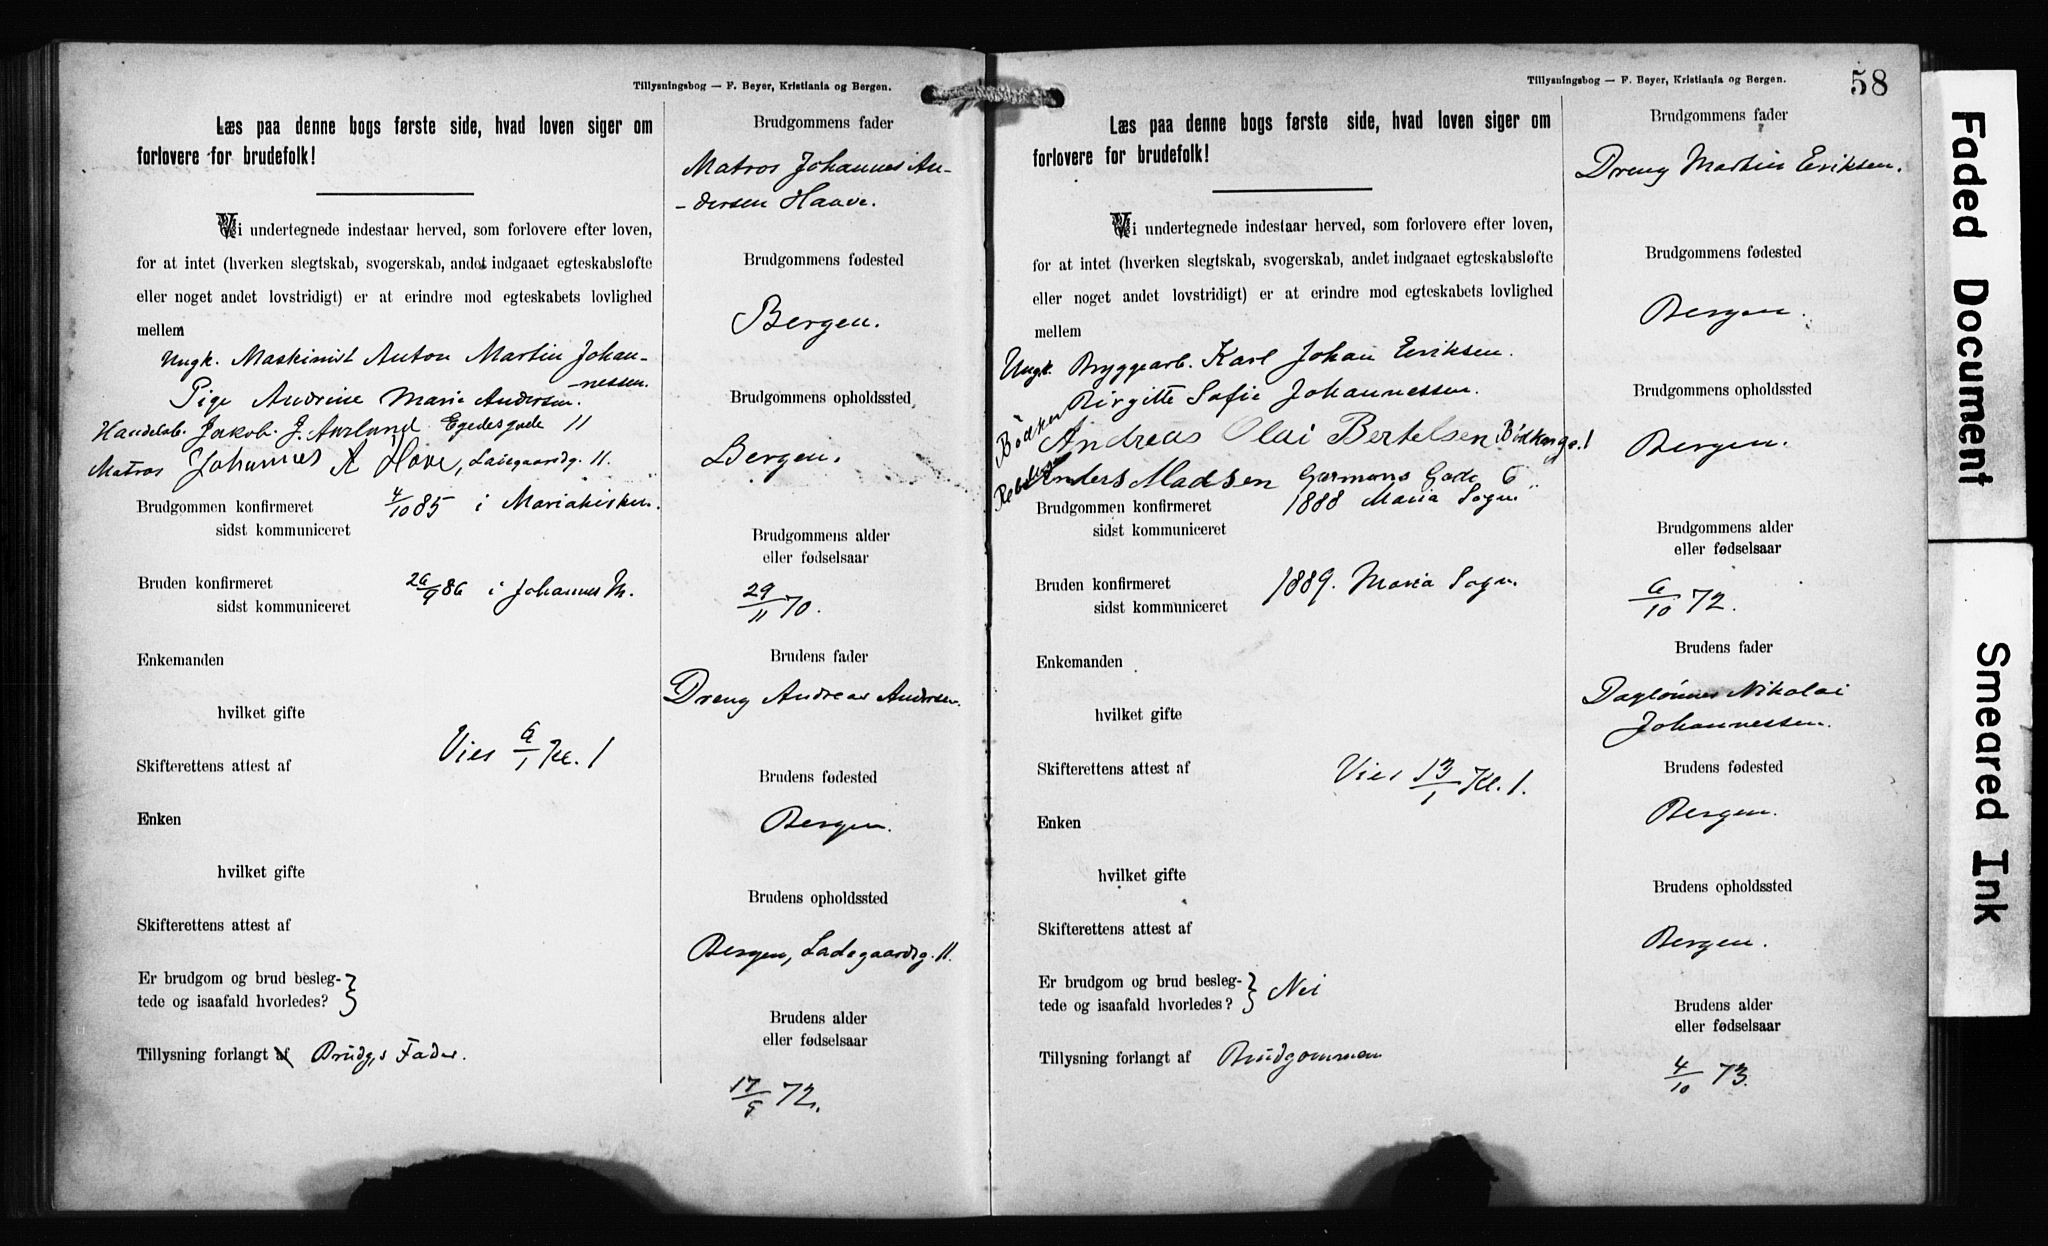 Tillysningsbog — F. Beyer, Kristiania og Bergen.
Læs paa denne bogs første side, hvad loven siger om
forlovere for brudefolk!
Vi undertegnede indestaar herved, som forlovere efter loven,
for at intet (hverken slegtskab, svogerskab, andet indgaaet egteskabsløfte
eller noget andet lovstridigt) er at erindre mod egteskabets lovlighed
mellem
Ungk. Maskinist Anton Martin Johan-
-nessen.
Pige Andrine Marie Andersen.
Handelsb. Jakob J. Aurland Egedesgade 11
Matros Johannes A Hove, Ladgaardsg. 11.
Brudgommen konfirmeret 4/10 85 i Mariakirken.
sidst kommuniceret
Bruden konfirmeret 26/9 86 i Johannes M.
sidst kommuniceret
Enkemanden
hvilket gifte
Vies 6/1 Kl. 1
Skifterettens attest af
Enken
hvilket gifte
Skifterettens attest af
Er brudgom og brud besleg-
tede og isaafald hvorledes?
Tillysning forlangt af Brudg,s Fader.
Brudgommens fader
Matros Johannes An-
-dersen Haave.
Brudgommens fødested
Bergen.
Brudgommens opholdssted
Bergen.
Brudgommens alder
eller fødselsaar
29/11 70.
Brudens fader
Dreng Andreas Andersen.
Brudens fødested
Bergen.
Brudens opholdssted
Bergen, Ladegaardsg. 11.
Brudens alder
eller fødselsaar
17/5 72.
Tillysningsbog — F. Beyer, Kristiania og Bergen.
58
Læs paa denne bogs første side, hvad loven siger om
forlovere for brudefolk!
Vi undertegnede indestaar herved, som forlovere efter loven,
for at intet (hverken slegtskab, svogerskab, andet indgaaet egteskabsløfte
eller noget andet lovstridigt) er at erindre mod egteskabets lovlighed
mellem
Ungk. Bryggearb. Karl Johan Eriksen.
Birgitte Sofie Johannessen.
Bødker Andreas Olai Bertelsen Bødkerg. 1
Anders Madsen Garmans Gade 6
Brudgommen konfirmeret 1888 Maria Sogn
sidst kommuniceret
Bruden konfirmeret 1889. Maria Sogn.
sidst kommuniceret
Enkemanden
hvilket gifte
Skifterettens attest af
Vies 13/1 Kl. 1.
Enken
hvilket gifte
Skifterettens attest af
Er brudgom og brud besleg-
tede og isaafald hvorledes? Nei
Tillysning forlangt af Brudgommen
Brudgommens fader
Dreng Martin Eriksen.
Brudgommens fødested
Bergen.
Brudgommens opholdssted
Bergen.
Brudgommens alder
eller fødselsaar
6/10 72.
Brudens fader
Daglønner Nikolai
Johannessen.
Brudens fødested
Bergen.
Brudens opholdssted
Bergen.
Brudens alder
eller fødselsaar
4/10 73.
Faded Document
Smeared Ink